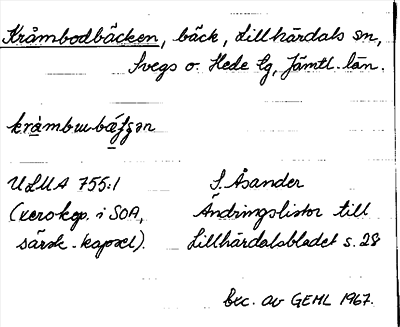 Kråmbodbäcken, bäck, Lillhärdals sn,
Svegs o. Hede tg, Jämtl. län.
ULMA 755:1
(xerokop. i SOA,
särsk. kapsel).
S. Åsander
Ändringslistor till
Lillhärdalsbladet s. 28
bec. av GEHL 1967.